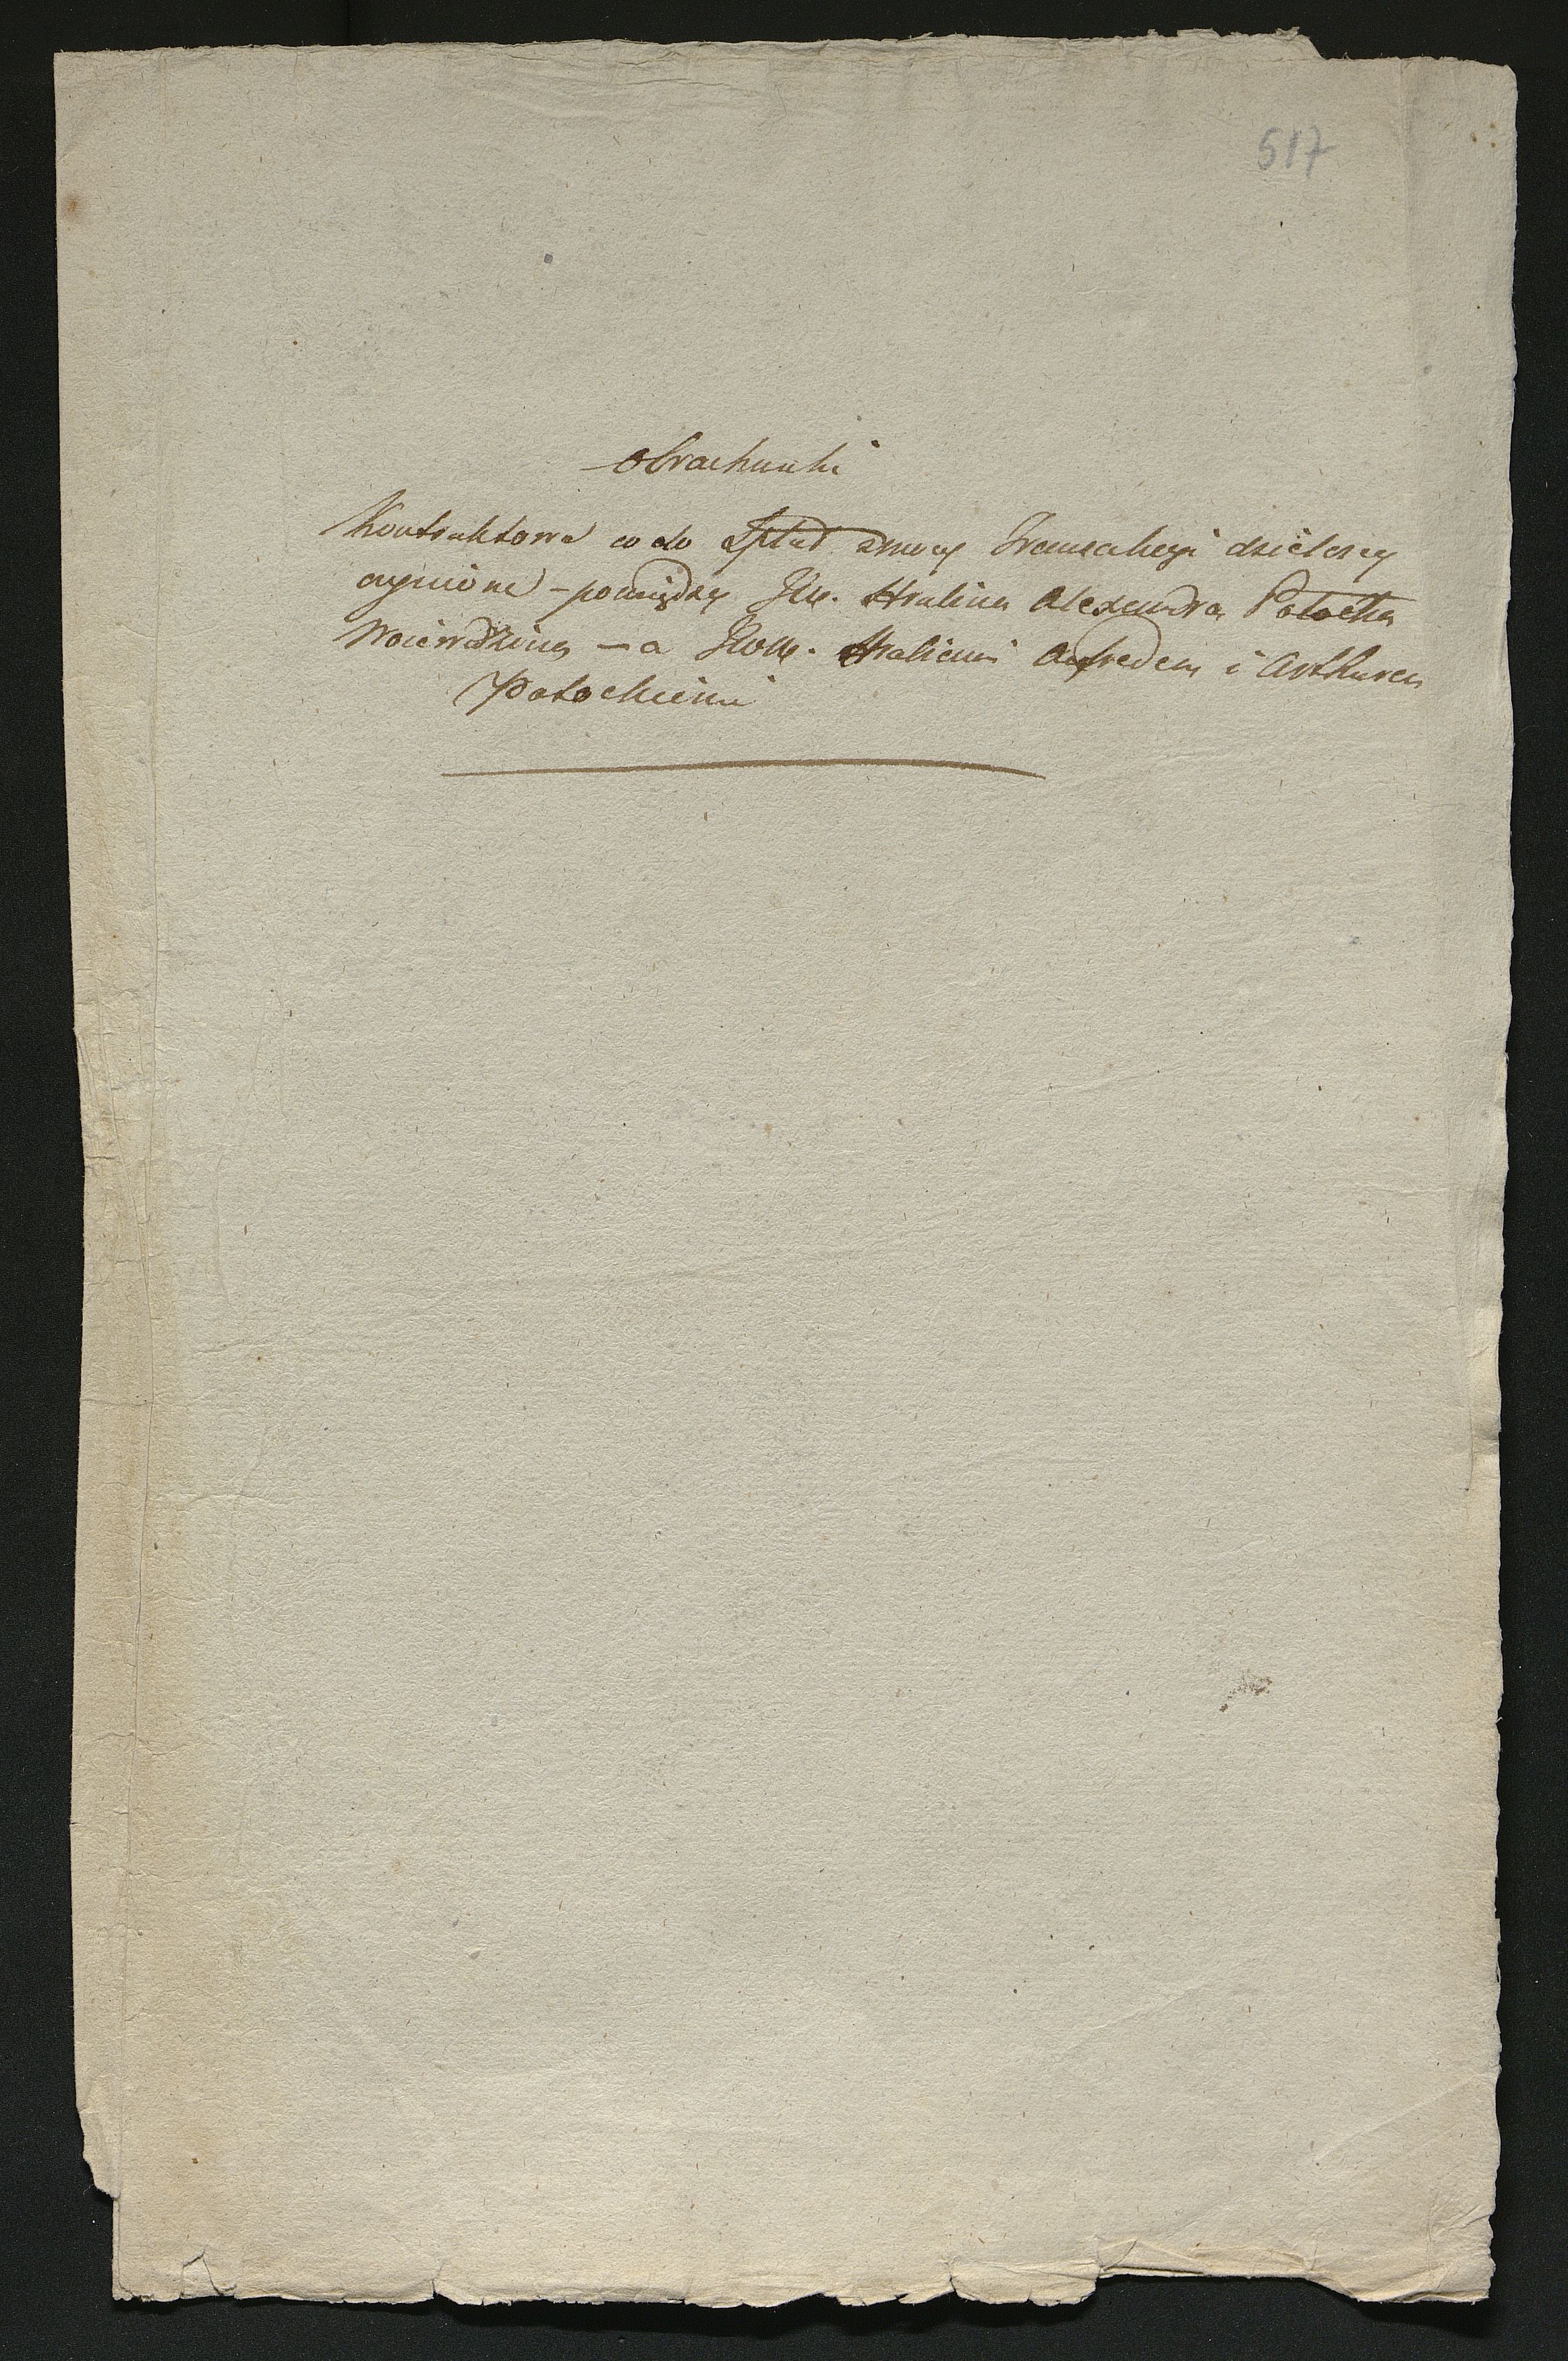 517
Obrachunki
Kontraktowe co do Spłat z mocy Transakcyi dzielczey
czynione - pomiędzy JW. Hrabiną Alexandrą Potocką
Woiewodziną - a JWW. Hrabiami Alfredem i Arthurem
Potockiemi